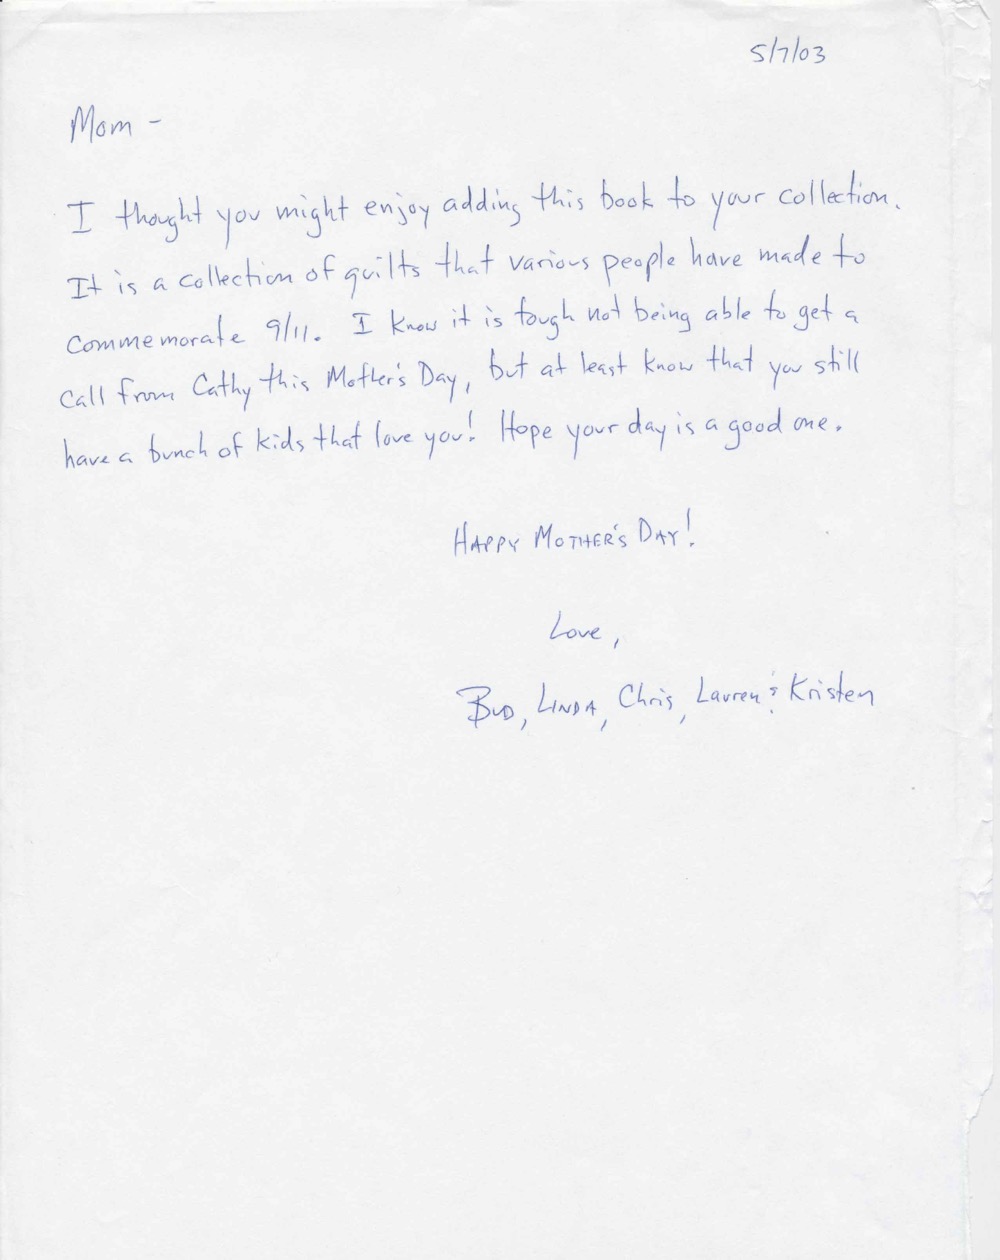 5/7/03
Mom -
I thought you might enjoy adding this book to your collection.
It is a collection of quilts that various people have made to
commemorate 9/11. I know it is tough not being able to get a
call from Cathy this Mother's Day, but at least know that you still
have a bunch of kids that love you! Hope your day is a good one.
HAPPY MOTHER'S DAY!
Love,
BUD, LINDA, Chris, Lauren & Kristen